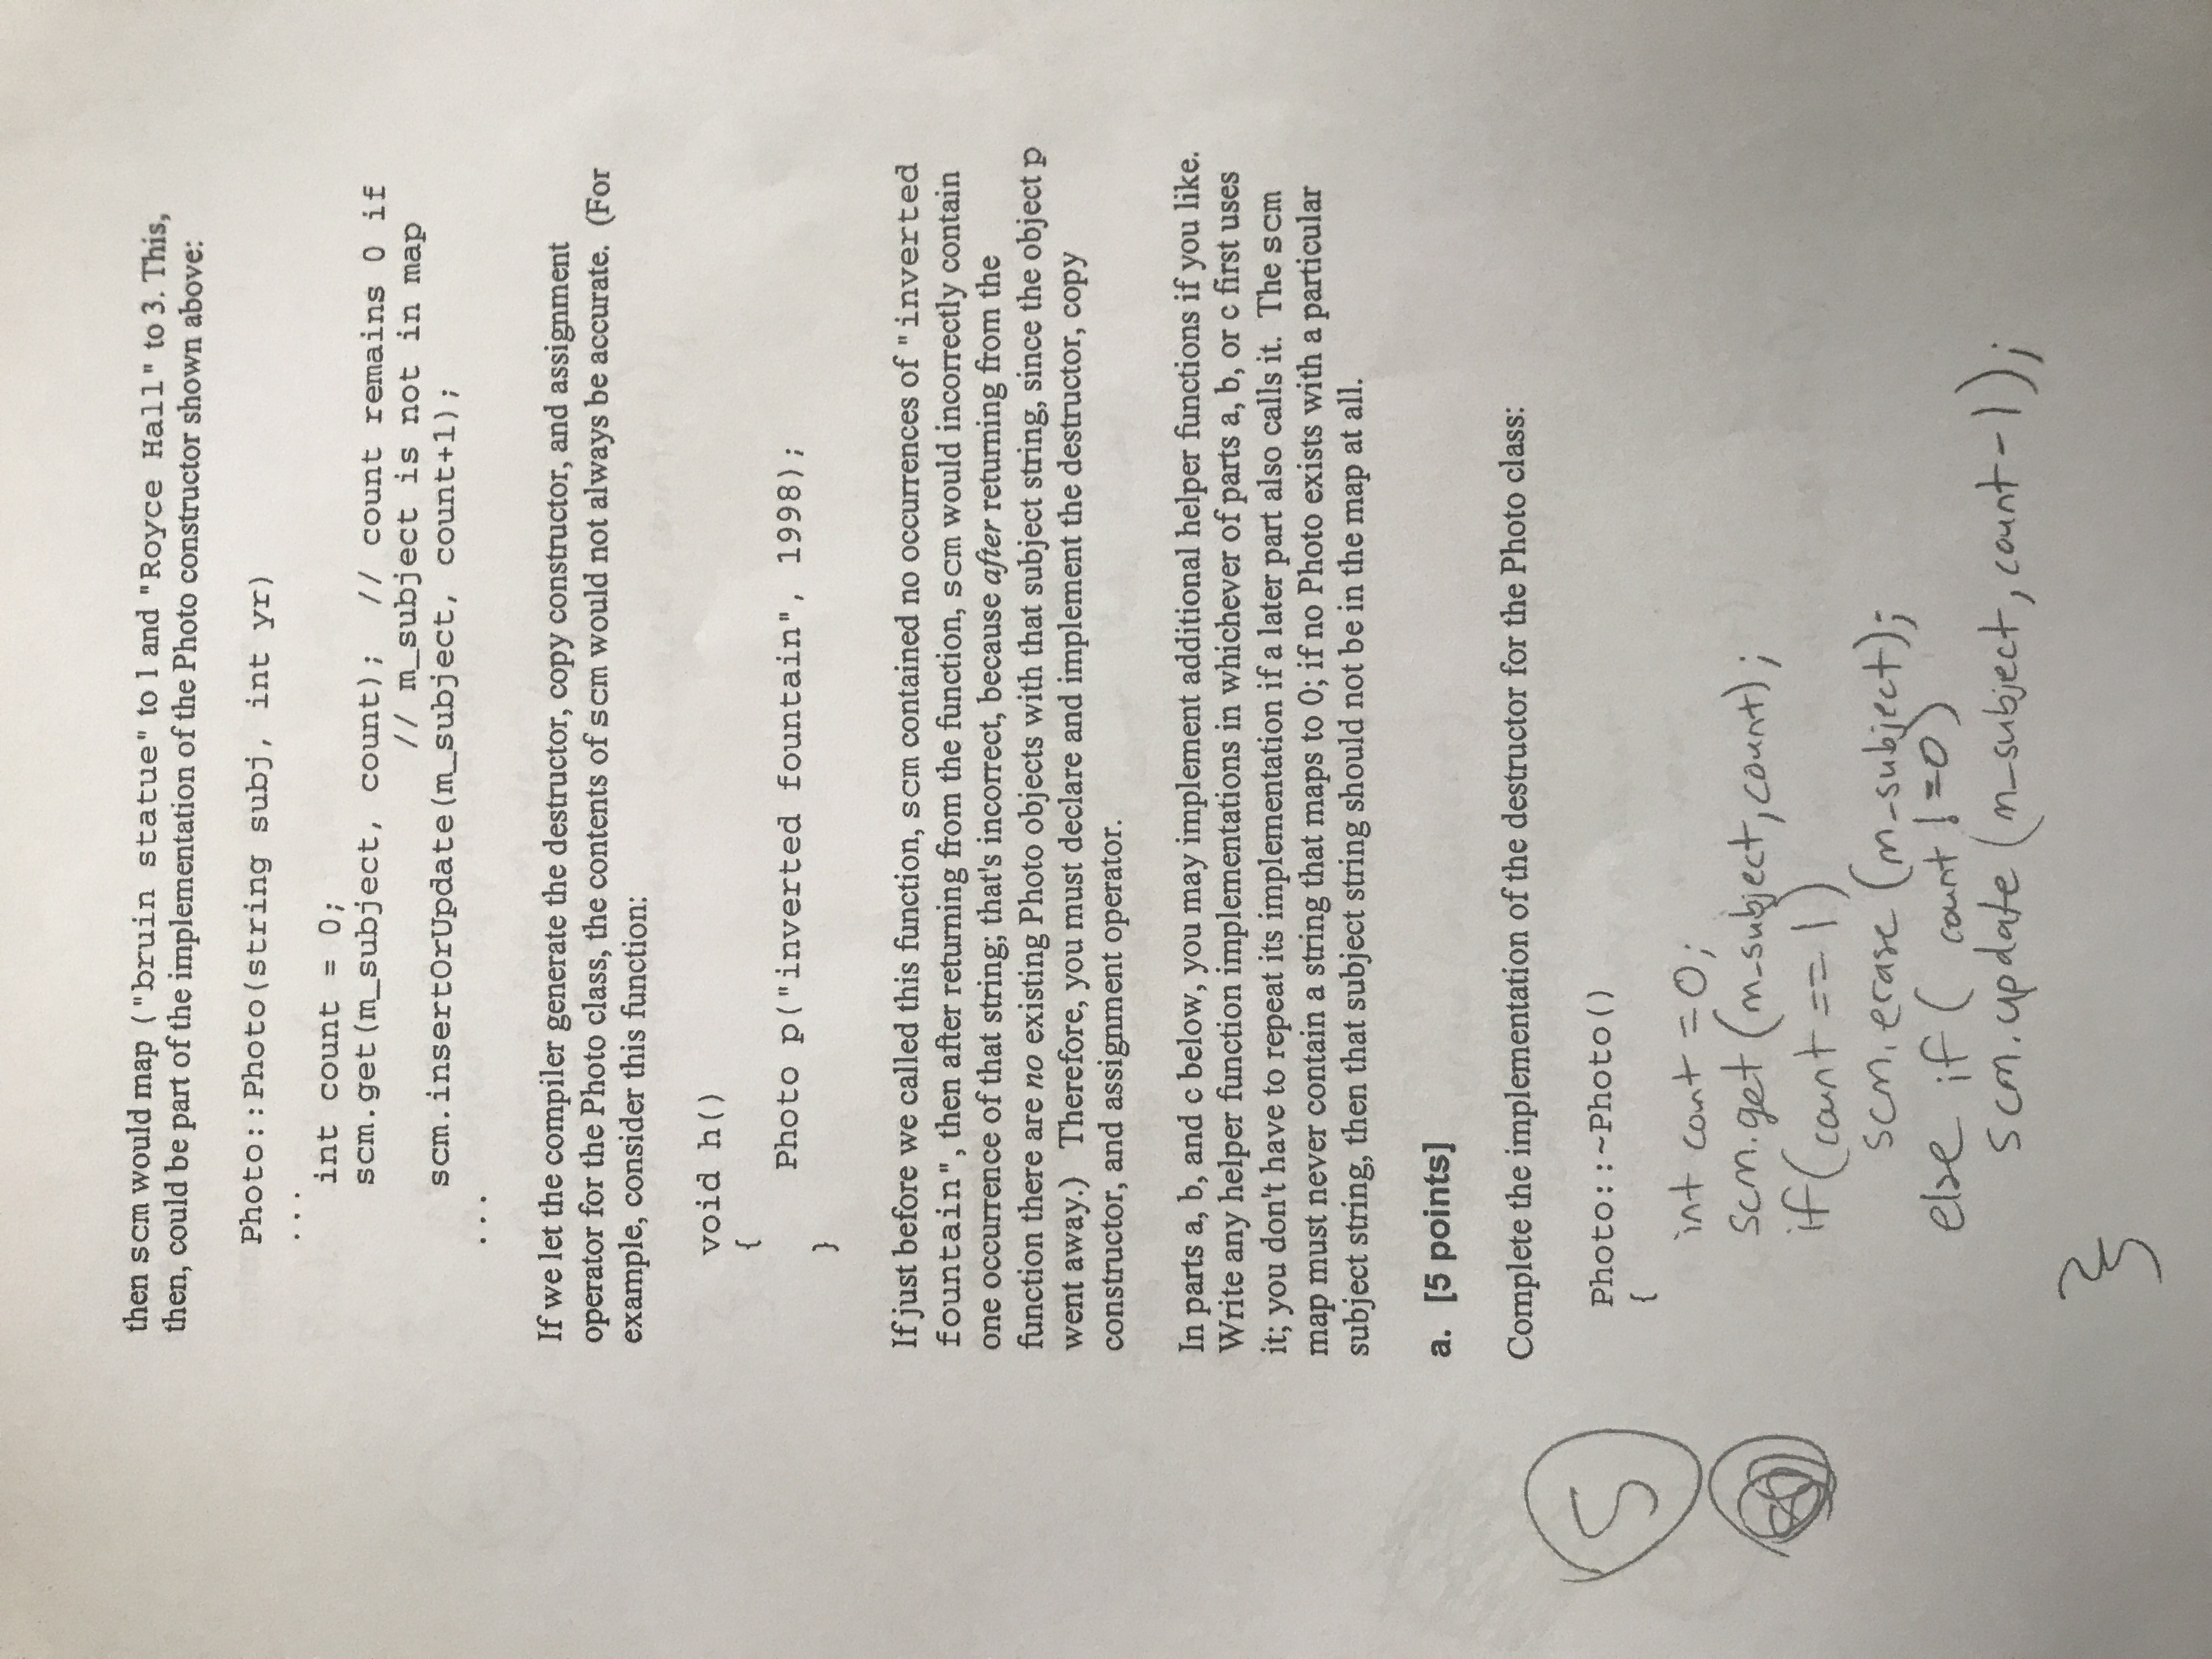 then scm would map ("bruin statue" to 1 and "Royce Hall" to 3. This,
then, could be part of the implementation of the Photo constructor shown above:
Photo::Photo(string subj, int yr)
...
int count = 0;
scm.get(m_subject, count); // count remains 0 if
// m_subject is not in map
scm.insertOrUpdate(m_subject, count+1);
...
If we let the compiler generate the destructor, copy constructor, and assignment
operator for the Photo class, the contents of scm would not always be accurate. (For
example, consider this function:
void h()
{
Photo p("inverted fountain", 1998);
}
If just before we called this function, scm contained no occurrences of "inverted
fountain", then after returning from the function, scm would incorrectly contain
one occurrence of that string; that's incorrect, because after returning from the
function there are no existing Photo objects with that subject string, since the object p
went away.) Therefore, you must declare and implement the destructor, copy
constructor, and assignment operator.
In parts a, b, and c below, you may implement additional helper functions if you like.
Write any helper function implementations in whichever of parts a, b, or c first uses
it; you don't have to repeat its implementation if a later part also calls it. The scm
map must never contain a string that maps to 0; if no Photo exists with a particular
subject string, then that subject string should not be in the map at all.
a. [5 points]
Complete the implementation of the destructor for the Photo class:
5
Photo::~Photo()
{
int count = 0;
scm.get(m_subject, count);
if(count == 1)
scm.erase(m_subject);
else if( count != 0)
scm.update(m_subject, count-1);
}